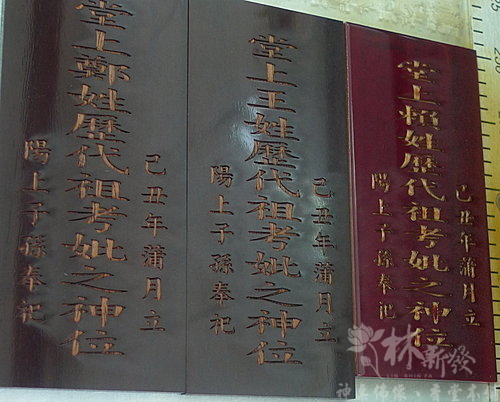 己丑年蒲月立
堂上賴姓歷代祖考妣之神位
陽上子孫奉祀
己丑年蒲月立
堂上王姓歷代祖考妣之神位
陽上子孫奉祀
己丑年蒲月立
堂上鄭姓歷代祖考妣之神位
陽上子孫奉祀
林新發